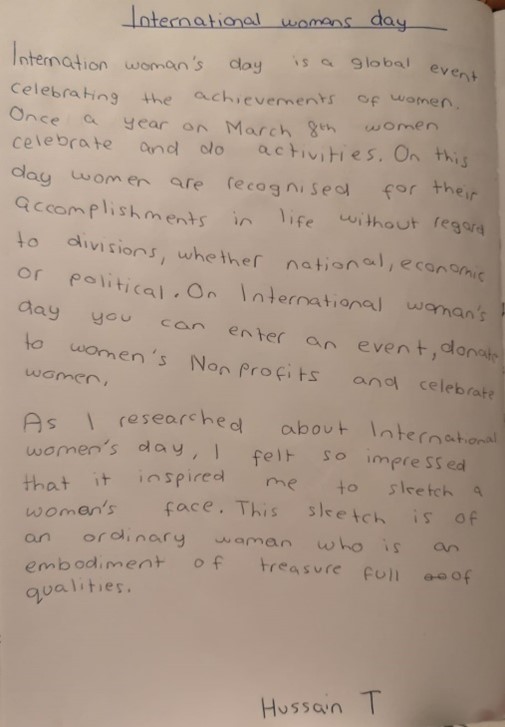 International womans day
Internation woman's day is a global event
celebrating the achievements of women.
Once a year on March 8th women
celebrate and do activities. On this
day women are recognised for their
accomplishments in life without regard
to divisions, whether national, economic
or political. On International woman's
day you can enter an event, donate
to women's Nonprofits and celebrate
women.
As I researched about International
women's day, I felt so impressed
that it inspired me to sketch a
women's face. This sketch is of
an ordinary woman who is an
embodiment of treasure full of
qualities.
Hussain T